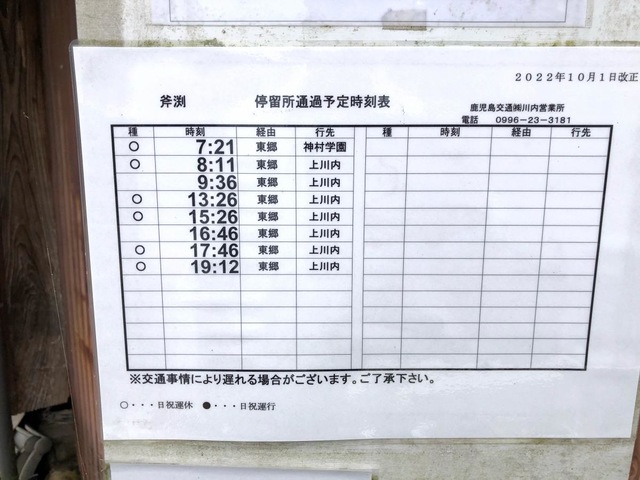 2022年10月1日改正
斧渕 停留所通過予定時刻表 鹿児島交通㈱川内営業所
電話 0996-23-3181
種 時刻 経由 行先 種 時刻 経由 行先
○ 7:21 東郷 神村学園
○ 8:11 東郷 上川内
9:36 東郷 上川内
○ 13:26 東郷 上川内
○ 15:26 東郷 上川内
16:46 東郷 上川内
○ 17:46 東郷 上川内
○ 19:12 東郷 上川内
※交通事情により遅れる場合がございます。ご了承下さい。
○・・・日祝運休 ●・・・日祝運行